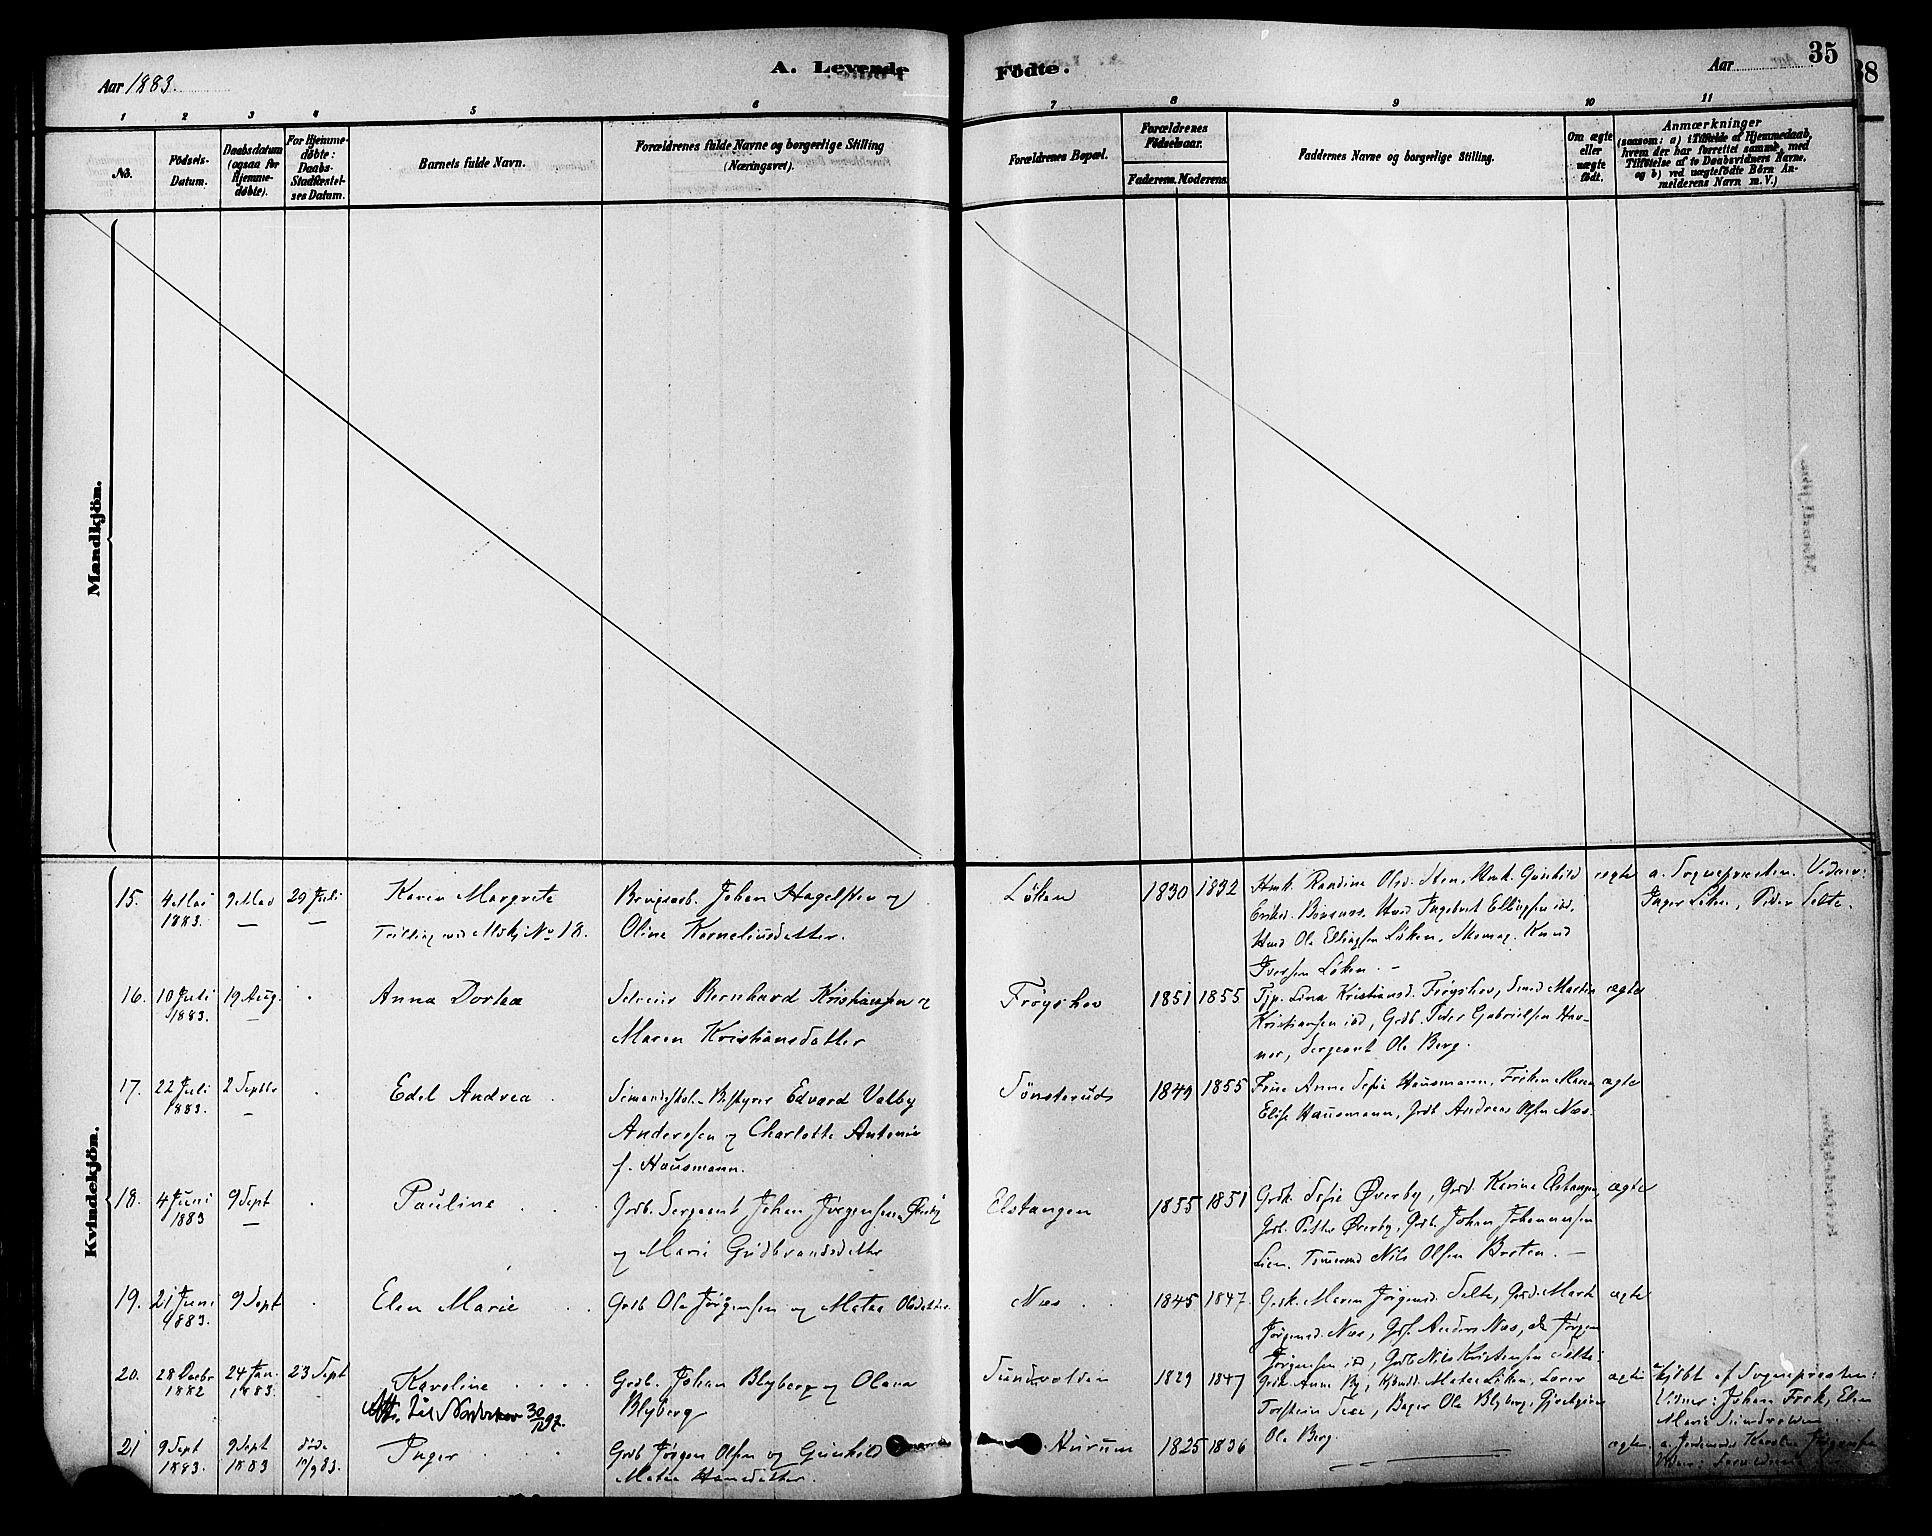 Aar 1883.
A. Levende Födte.
Aar
35
38
1 2 3 4 5 6 7 8 9 10 11
No.
Födsels-
Datum.
Daabsdatum
(ogsaa for
Hjemme-
døbte).
For Hjemme-
døbte:
Daabs-
Stadfæstel-
ses Datum.
Barnets fulde Navn.
Forældrenes fulde Navne og borgerlige Stilling
(Næringsvei).
Forældrenes Bopæl.
Forældrenes
Födselsaar.
Faderens. Moderens.
Faddernes Navne og borgerlige Stilling.
Om ægte
eller
uægte
født.
Anmærkninger
(saasom: a) i Tilfælde af Hjemmedaab,
hvem der har forrettet samme, med
Tilføielse af to Daabsvidners Navne,
og b) ved uægtefødte Börn An-
melderens Navn m. V.)
Mandkjön.
Kvindekjön.
15. 4 Mai 1883. 9 Mai 29 Juli
Karen Margrete
Tvilling med Mskj. No 18.
Johan Hagelsten og
Oline Korneliusdatter.
Löken 1830 1832
Randine Olsd. Sten, Gunhild
Ingebret Ellingsen ibd.
Ole Ellingsen Löken, Skomag. Knud
Iversen Löken.
ægte
a. Sognepresten. Vidner:
Inger Löken, Peder Selte.
16. 10 Juli 1883. 19 Aug.
Anna Dortea
Selveier Bernhard Kristiansen og
Maren Kristiansdatter
Fröyshov 1851 1855
Tjp. Lina Kristiansd. Fröyshov, Smed Martin
Kristiansen ibd, Grdb. Peder Gabrielsen Hav-
nor, Sergeant Ole Berg.
ægte
17. 22 Juli 1883. 2 Septbr
Edel Andrea
Bestyrer Edvard Valby
Andersen og Charlotte Antonie
f. Hausmann.
Sönsterud 1849 1855
Frue Anne Sofie Hausmann, Fröken Maren
Elise Hausmann, Grdb. Andreas Olsen Næs.
ægte
18. 4 Juni 1883 9 Sept
Pauline
Grdb. Sergeant Johan Jörgensen Øverby
og Marie Gudbrandsdatter
Elstangen 1855 1851
Grdk. Sofie Øverby, Grdd. Karine Elstangen,
Grdb. Petter Øverby, Grdb. Johan Johannesen
Lien, Tömmermd Nils Olsen Broten.
ægte
19. 21 Juni 1883. 9 Sept
Elen Marie
Grdb Ole Jörgensen og Matea Olsdatter.
Næs 1845 1847.
Grdk. Maren Jörgensd. Selte, Grdd. Marte
Jörgensd. Næs, Grdf. Anders Næs, do Jörgen
Jörgensen ibd, Grdb Nils Kristensen Selte.
ægte
20. 28 Decbr 1882 24 Jan. 1883. 23 Sept
Karoline
Att. til 30/12 97.
Grdb. Johan Blyberg og Olava
Blyberg
Sundvolden 1829 1847
Grdk. Anne By, Matea Löken, Lærer
Torstein Bager Ole Blyberg,
Ole Berg.
ægte
Døbt af Sognepresten:
Vidner: Johan Elen
Marie Sundvolden
21 9 Sept 1883. 9 Sept 1883 døde 17/9 83.
Inger
Grdb Jörgen Olsen og Gunhild
Matea Hansdatter.
Hurum 1825 1836
ægte
a. Jordemoder Karoline Jörgensen
Vidner: